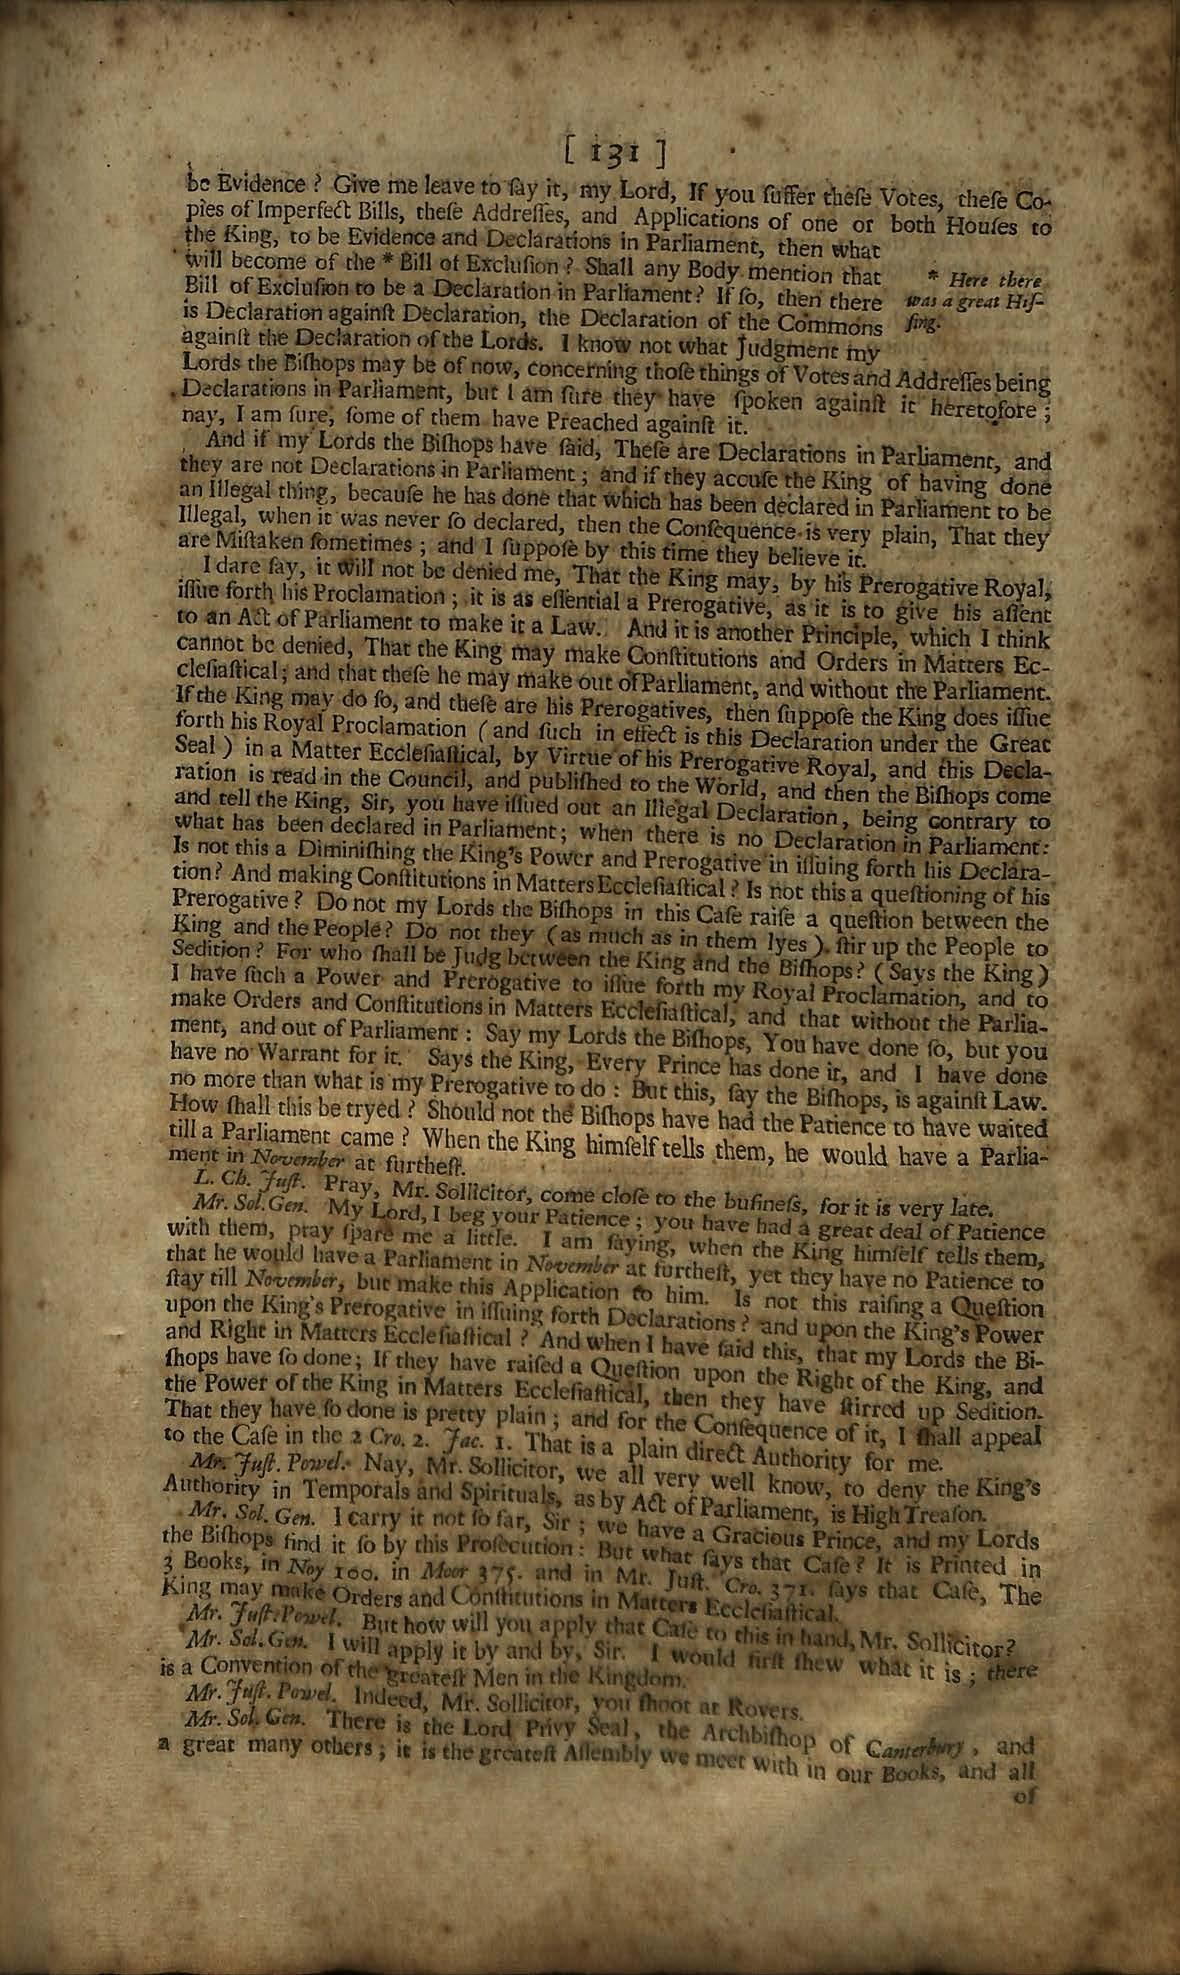 [ 131 ]
be Evidence ? Give me leave to ſay it, my Lord, If you ſuffer theſe Votes, theſe Co-
pies of Imperfect Bills, theſe Addreſſes, and Applications of one or both Houſes to
the King, to be Evidence and Declarations in Parliament, then what
will become of the * Bill of Excluſion ? Shall any Body mention that
Bill of Excluſion to be a Declaration in Parliament? If ſo, then there
is Declaration againſt Declaration, the Declaration of the Commons
againſt the Declaration of the Lords. I know not what Judgment my
* Here there
was a great Hiſ-
ſing.
Lords the Biſhops may be of now, concerning thoſe things of Votes and Addreſſes being
Declarations in Parliament, but I am ſure they have ſpoken againſt it heretofore ;
nay, I am ſure, ſome of them have Preached againſt it.
And if my Lords the Biſhops have ſaid, Theſe are Declarations in Parliament, and
they are not Declarations in Parliament ; and if they accuſe the King of having done
an Illegal thing, becauſe he has done that which has been declared in Parliament to be
Illegal, when it was never ſo declared, then the Conſequence is very plain, That they
are Miſtaken ſometimes ; and I ſuppoſe by this time they believe it.
I dare ſay, it will not be denied me, That the King may, by his Prerogative Royal,
iſſue forth his Proclamation ; it is as eſſential a Prerogative, as it is to give his aſſent
to an Act of Parliament to make it a Law. And it is another Principle, which I think
cannot be denied, That the King may make Conſtitutions and Orders in Matters Ec-
cleſiaſtical ; and that theſe he may make out of Parliament, and without the Parliament.
If the King may do ſo, and theſe are his Prerogatives, then ſuppoſe the King does iſſue
forth his Royal Proclamation ( and ſuch in effect is this Declaration under the Great
Seal ) in a Matter Eccleſiaſtical, by Virtue of his Prerogative Royal, and this Decla-
ration is read in the Council, and publiſhed to the World, and then the Biſhops come
and tell the King, Sir, you have iſſued out an Illegal Declaration, being contrary to
what has been declared in Parliament; when there is no Declaration in Parliament:
Is not this a Diminiſhing the King's Power and Prerogative in iſſuing forth his Declara-
tion? And making Conſtitutions in Matters Eccleſiaſtical ? Is not this a queſtioning of his
Prerogative ? Do not my Lords the Biſhops in this Caſe raiſe a queſtion between the
King and the People? Do not they (as much as in them lyes ) ſtir up the People to
Sedition ? For who ſhall be Judg between the King and the Biſhops? ( Says the King)
I have ſuch a Power and Prerogative to iſſue forth my Royal Proclamation, and to
make Orders and Conſtitutions in Matters Eccleſiaſtical, and that without the Parlia-
ment, and out of Parliament : Say my Lords the Biſhops, You have done ſo, but you
have no Warrant for it. Says the King, Every Prince has done it, and I have done
no more than what is my Prerogative to do : But this, ſay the Biſhops, is againſt Law.
How ſhall this be tryed ? Should not the Biſhops have had the Patience to have waited
till a Parliament came ? When the King himſelf tells them, he would have a Parlia-
ment in November at furtheſt.
L. Ch. Juſt. Pray, Mr. Sollicitor, come cloſe to the buſineſs, for it is very late.
Mr. Sol. Gen. My Lord, I beg your Patience ; you have had a great deal of Patience
with them, pray ſpare me a little. I am ſaying, when the King himſelf tells them,
that he would have a Parliament in November at furtheſt, yet they have no Patience to
ſtay till November, but make this Application to him. Is not this raiſing a Queſtion
upon the King's Prerogative in iſſuing forth Declarations ? and upon the King's Power
and Right in Matters Eccleſiaſtical ? And when I have ſaid this, that my Lords the Bi-
ſhops have ſo done; If they have raiſed a Queſtion upon the Right of the King, and
the Power of the King in Matters Eccleſiaſtical, then they have ſtirred up Sedition.
That they have ſo done is pretty plain ; and for the Conſequence of it, I ſhall appeal
to the Caſe in the 2 Cro. 2. Jac. 1. That is a plain direct Authority for me.
Mr. Juſt. Powel. Nay, Mr. Sollicitor, we all very well know, to deny the King's
Authority in Temporals and Spirituals, as by Act of Parliament, is High Treaſon.
Mr. Sol. Gen. I carry it not ſo far, Sir ; we have a Gracious Prince, and my Lords
the Biſhops find it ſo by this Proſecution : But what ſays that Caſe ? It is Printed in
3 Books, in Noy 100. in Moor 375. and in Mr. Juſt. Cro. 371. ſays that Caſe, The
King may make Orders and Conſtitutions in Matters Eccleſiaſtical.
Mr. Juſt. Powel. But how will you apply that Caſe to this in hand, Mr. Sollicitor?
Mr. Sol. Gen. I will apply it by and by, Sir. I would firſt ſhew what it is ; there
is a Convention of the greateſt Men in the Kingdom.
Mr. Juſt. Powel. Indeed, Mr. Sollicitor, you ſhoot at Rovers.
Mr. Sol. Gen. There is the Lord Privy Seal, the Archbiſhop of Canterbury, and
a great many others ; it is the greateſt Aſſembly we meet with in our Books, and all
of